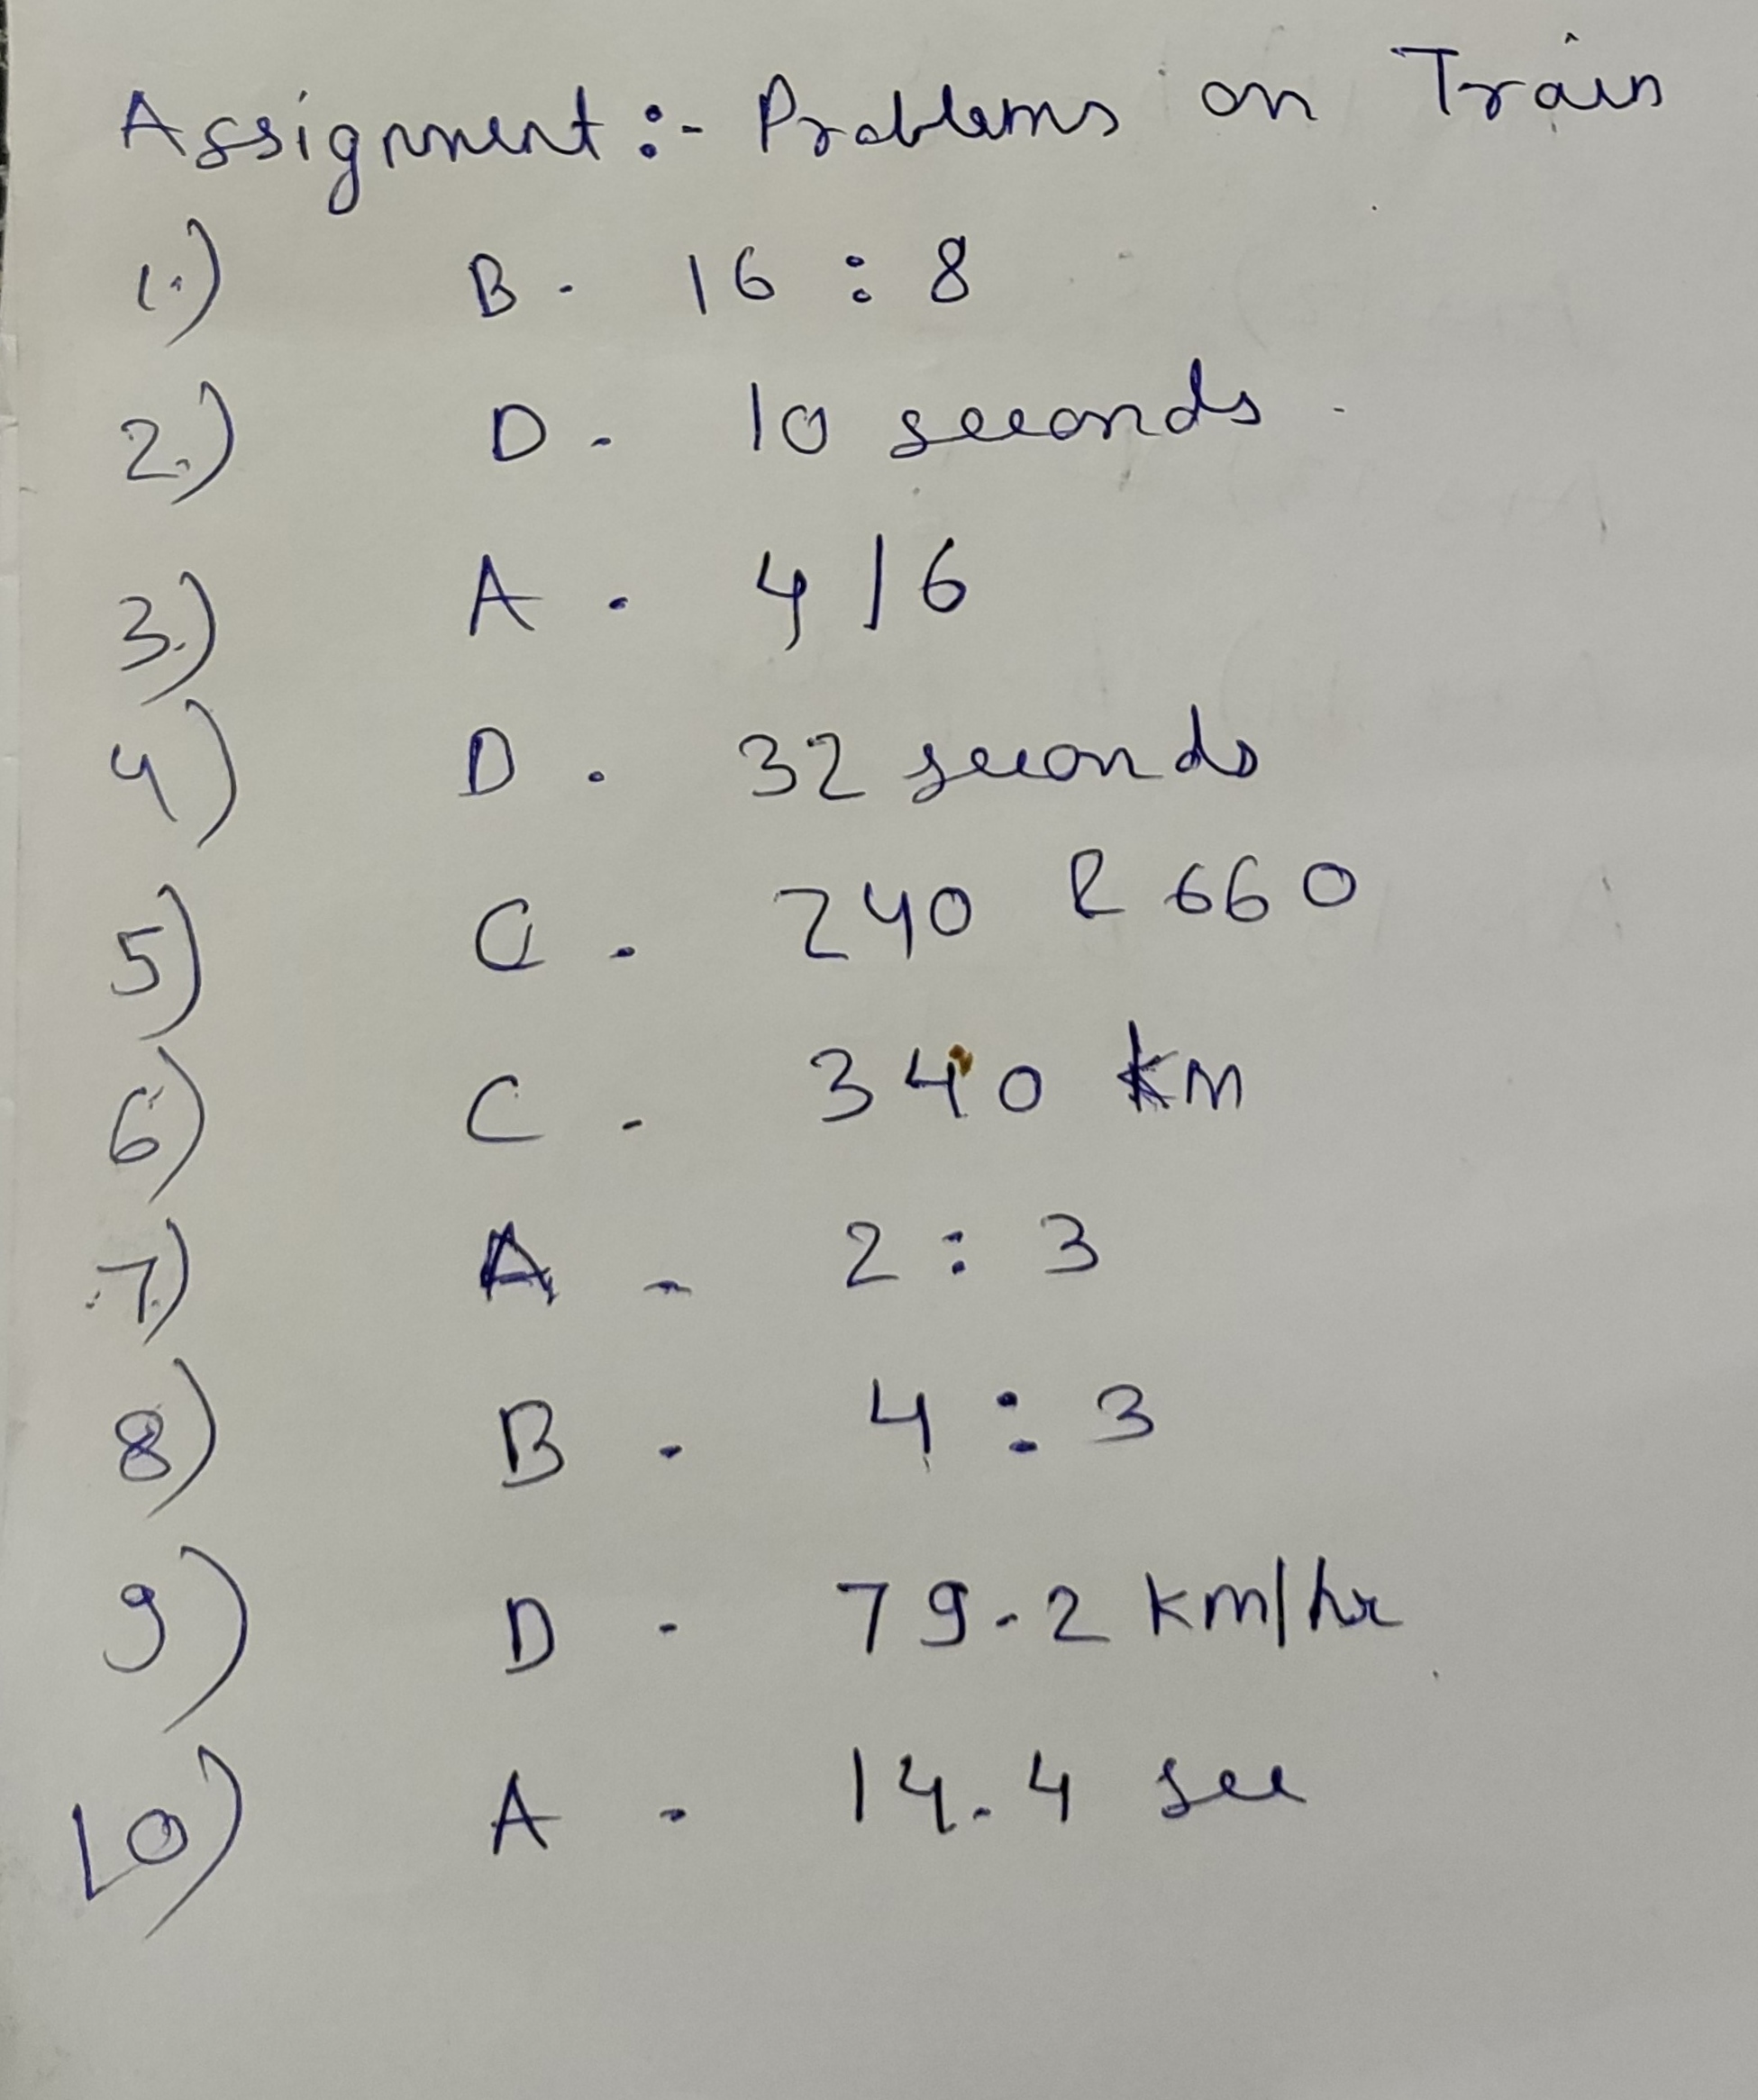 Assignment :- Problems on Train
1.) B. 16 : 8
2.) D. 10 seconds.
3.) A. 416
4) D. 32 seconds
5) C. 240 & 660
6) C. 340 km
7.) A - 2 : 3
8) B. 4 : 3
9) D. 79.2 km/hr
10) A. 14.4 sec